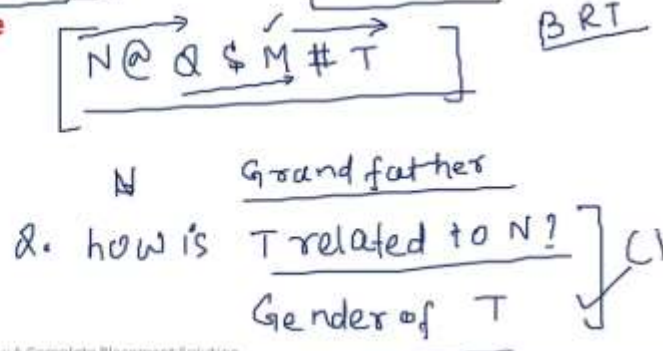 BRT
N@ Q $ M # T
N Grandfather
Q. how is T related to N?
Gender of T